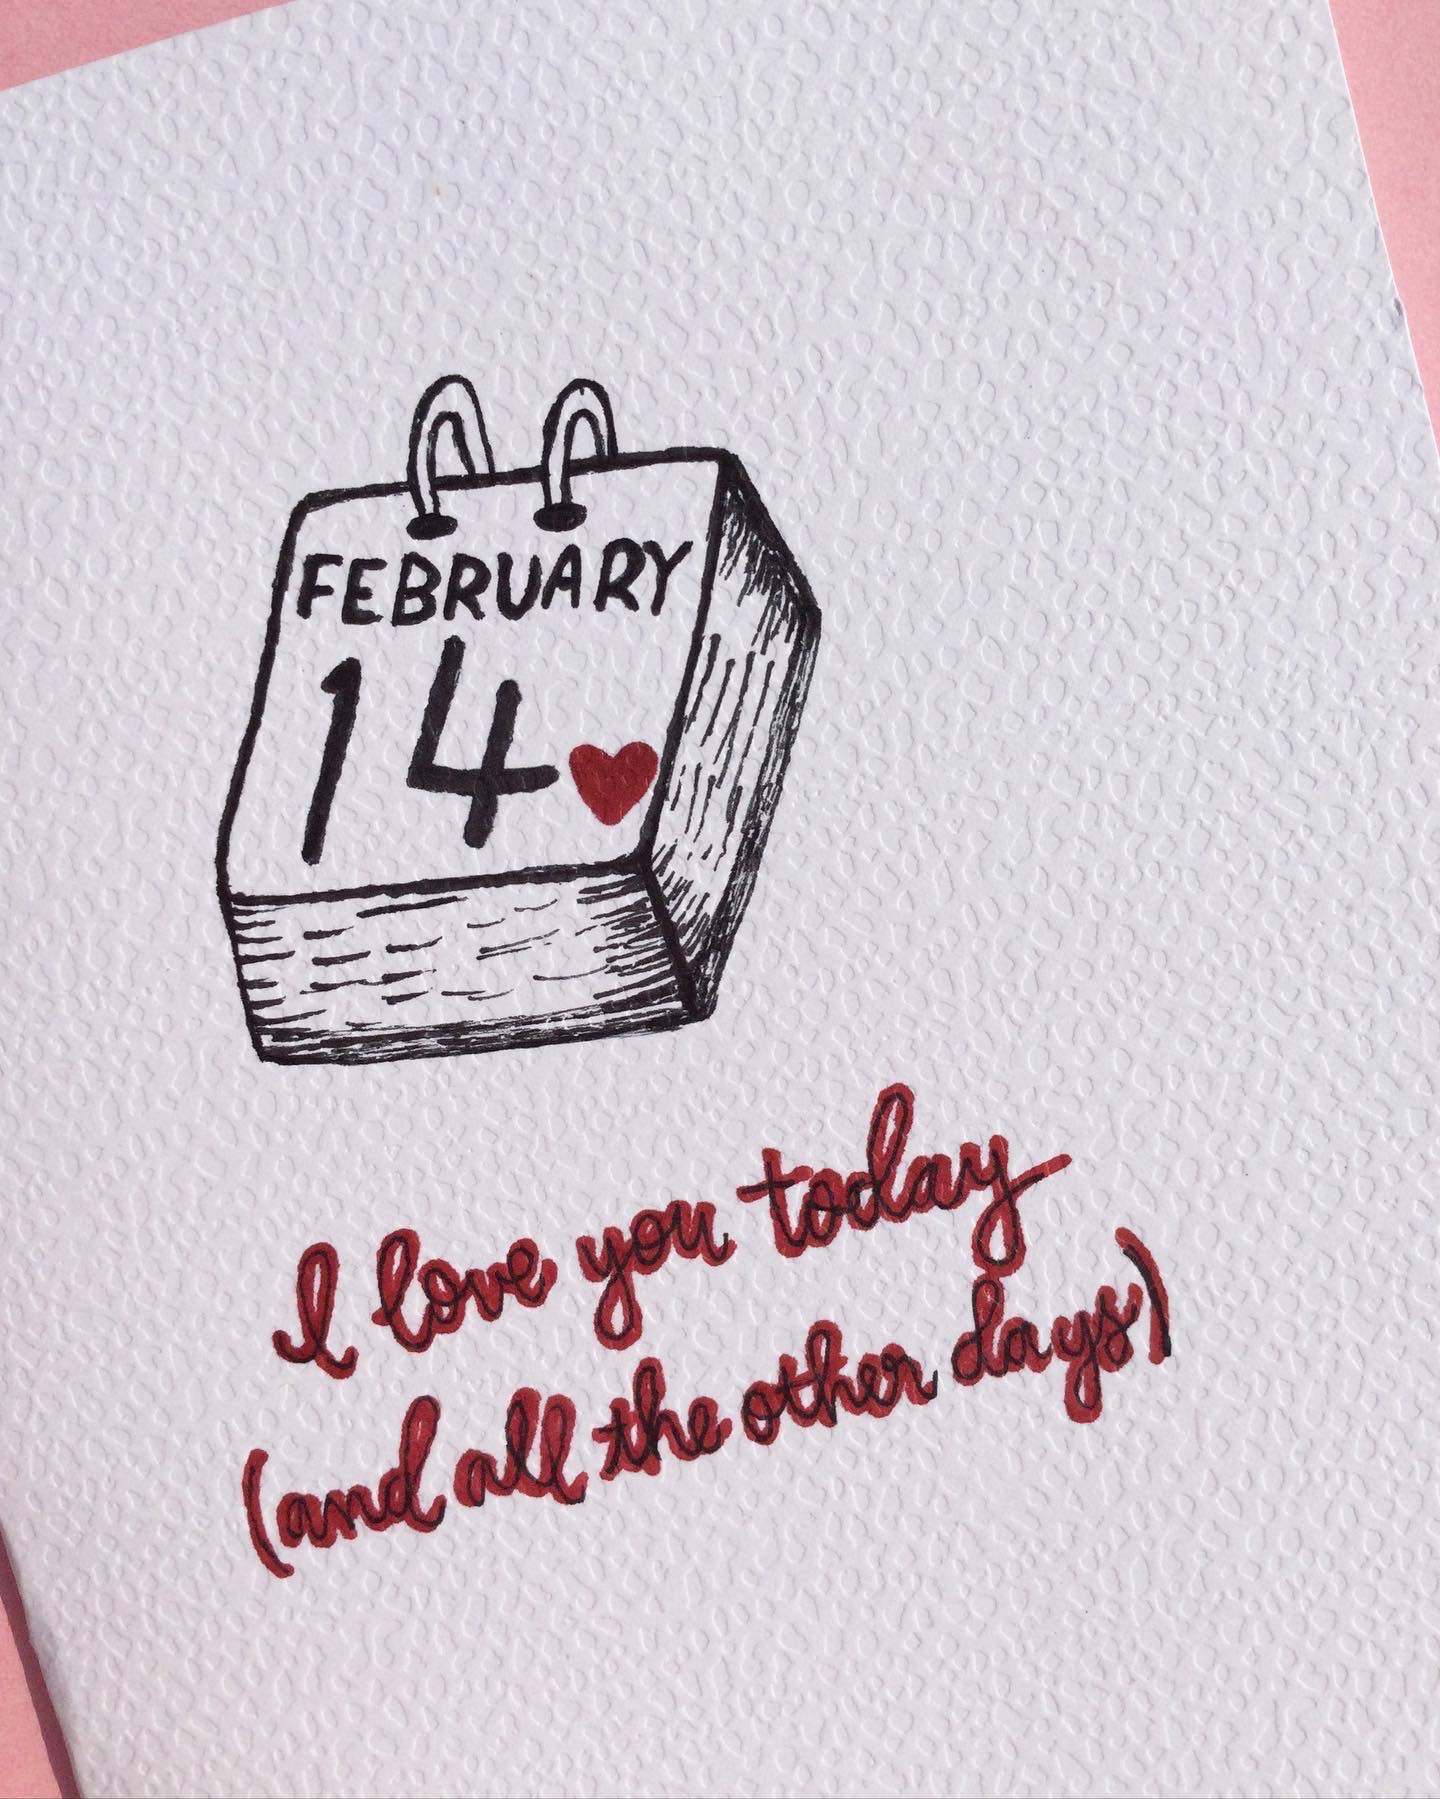 FEBRUARY
14
I love you today
(and all the other days)